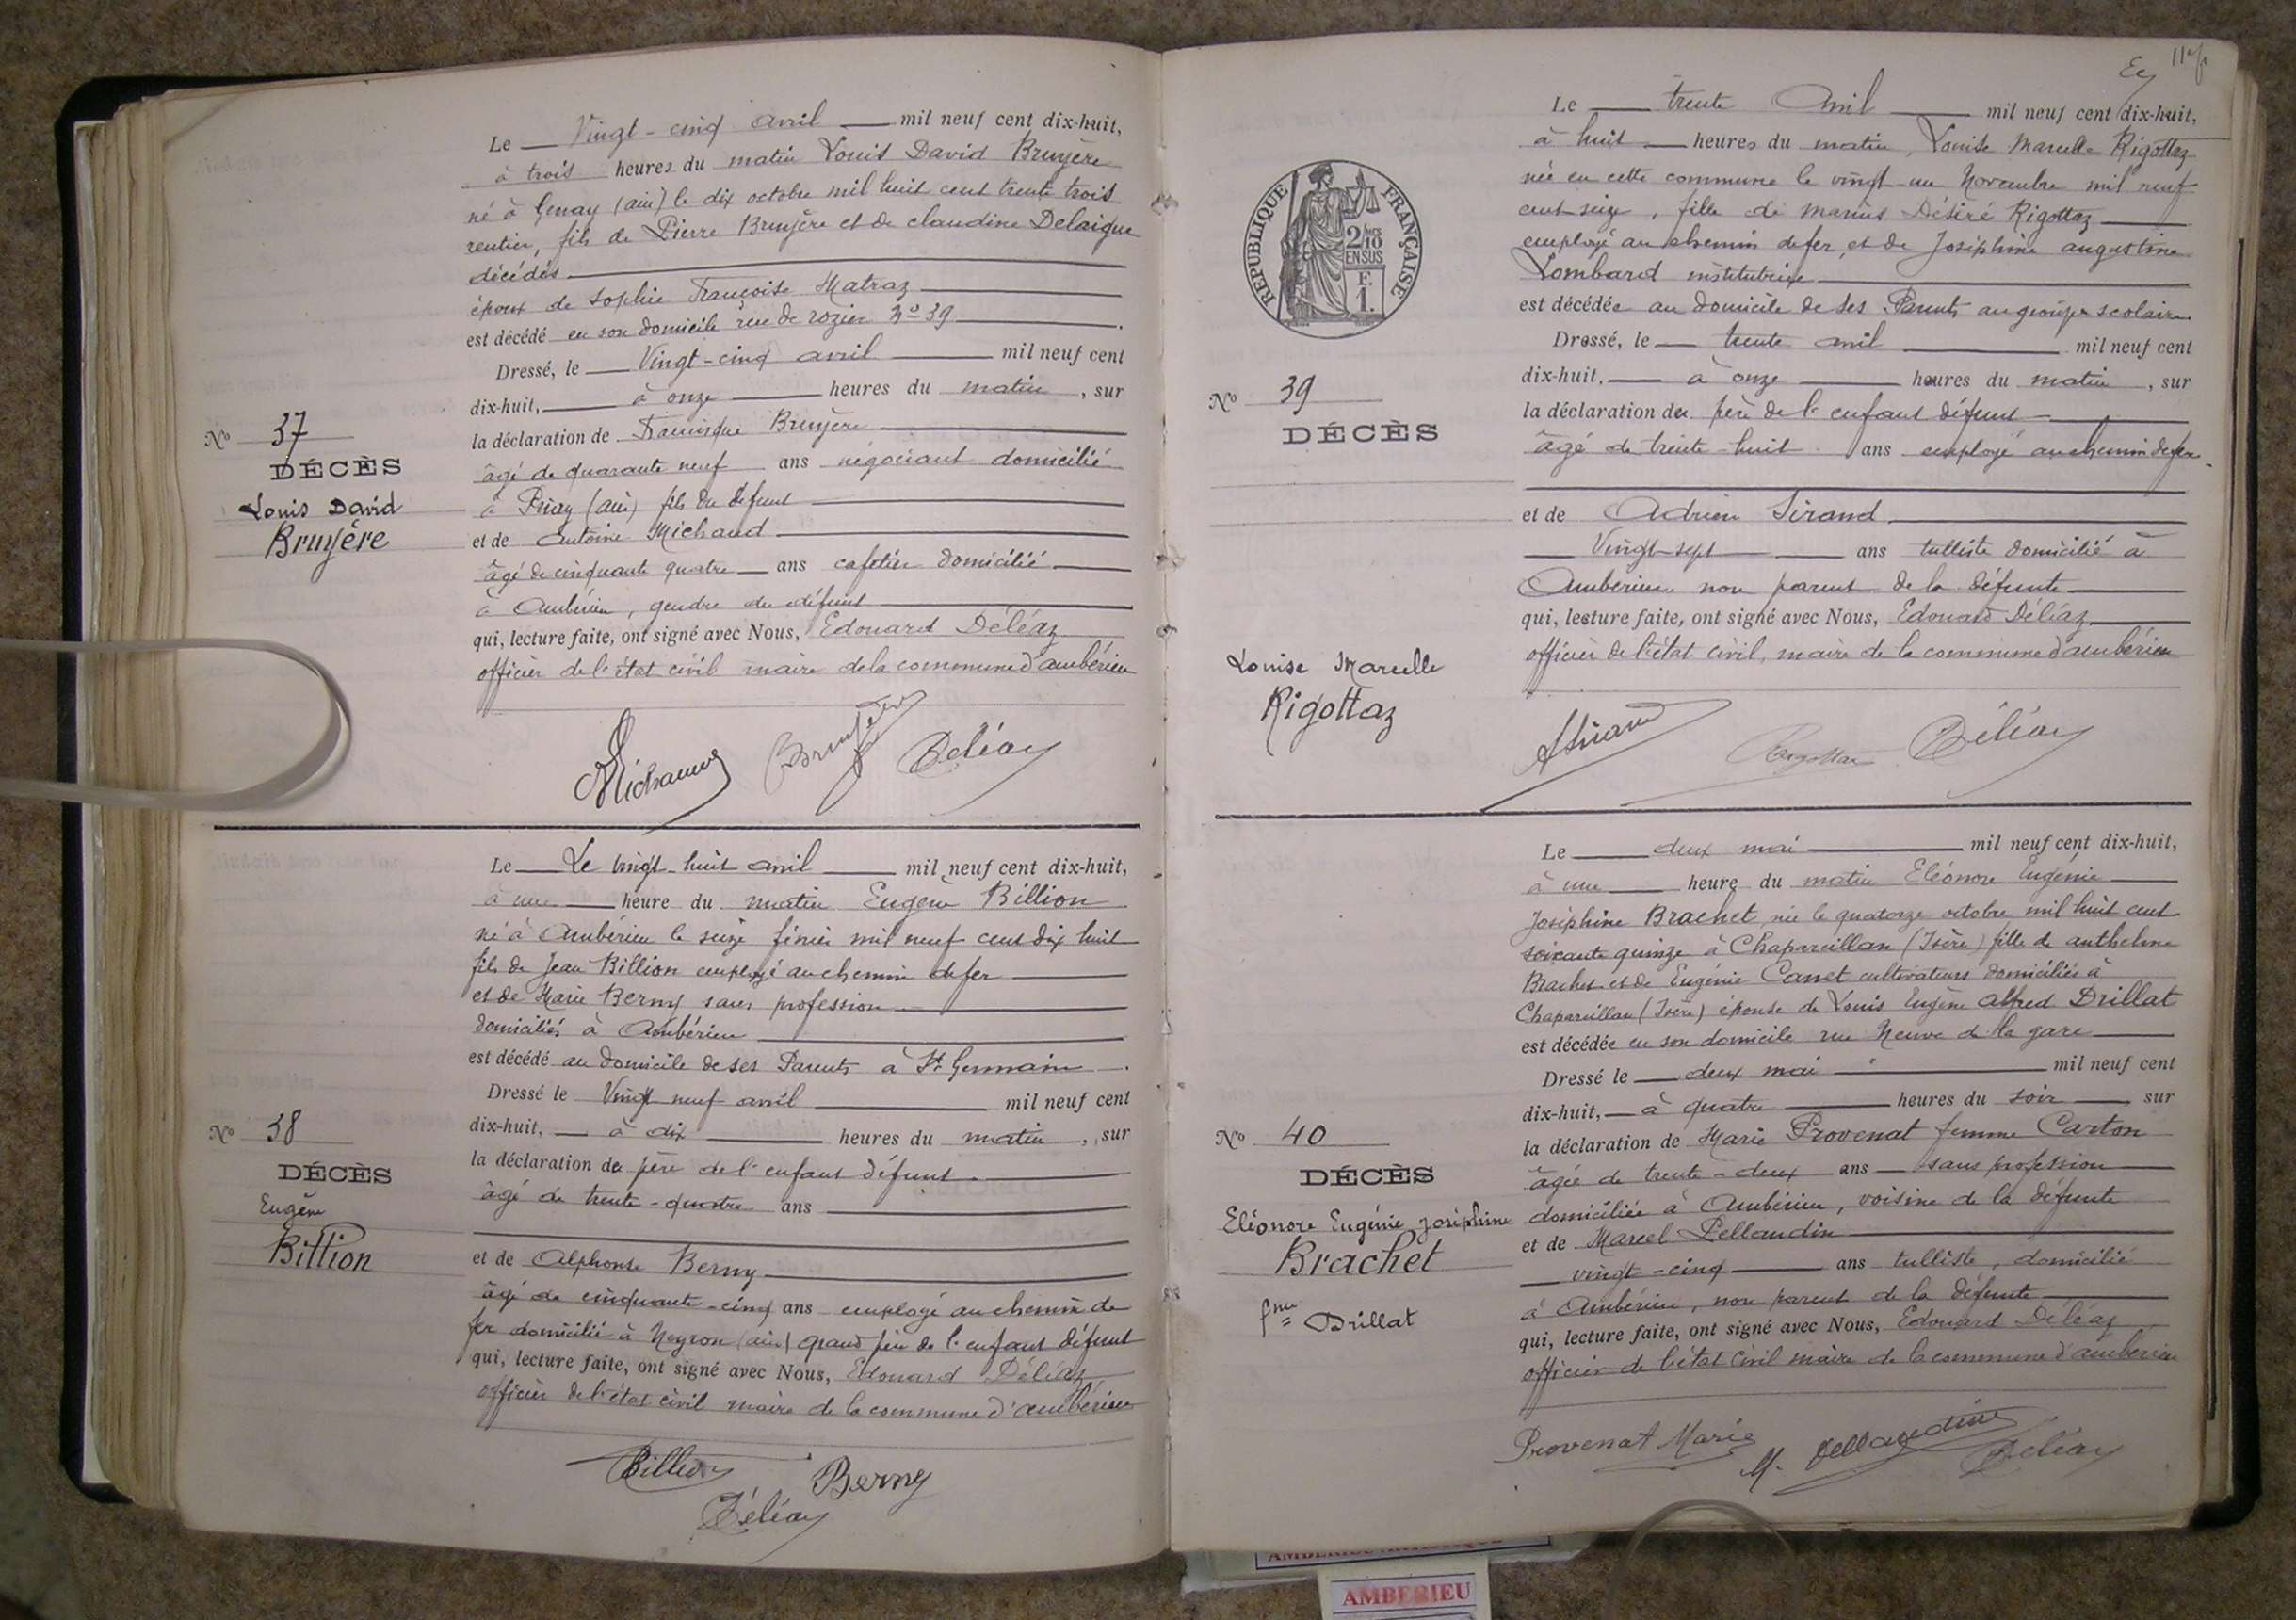 Le Vingt-cinq avril mil neuf cent dix-huit,
à trois heures du matin Louis David Bruyère
né à Genay (ain) le dix octobre mil huit cent trente trois
rentier, fils de Pierre Bruyère et de claudine Delaigue
décédés
époux de Sophie Françoise Matraz
est décédé en son domicile rue de rozier No 39.
Dressé, le Vingt-cinq avril mil neuf cent
dix-huit, à onze heures du matin, sur
la déclaration de Bruyère
âgé de quarante neuf ans négociant domicilié
à (ain) fils du défunt
et de Antoine Michaud
âgé de cinquante quatre ans cafetier domicilié
à Ambérieu, gendre du défunt
qui, lecture faite, ont signé avec Nous, Edouard Déléaz
officier de l'état civil maire de la commune d'ambérieu
Michaud Bruyère Déléaz
No 37
DÉCÈS
Louis David
Bruyère
Le Le vingt-huit avril mil neuf cent dix-huit,
à une heure du matin Eugène Billion
né à Ambérieu le seize février mil neuf cent dix huit
fils de Jean Billion employé au chemin de fer
et de Marie Berny sans profession
domiciliés à Ambérieu
est décédé au domicile de ses Parents à St Germain.
Dressé le Vingt neuf avril mil neuf cent
dix-huit, à dix heures du matin, sur
la déclaration du père de l'enfant défunt.
âgé de trente-quatre ans
et de Alphonse Berny
âgé de cinquante-cinq ans employé au chemin de
fer domicilié à Neyron (ain) grand père de l'enfant défunt
qui, lecture faite, ont signé avec Nous, Edouard Déléaz
officier de l'état civil maire de la commune d'ambérieu
Billion Berny
Déléaz
No 38
DÉCÈS
Eugène
Billion
Le trente Avril mil neuf cent dix-huit,
à huit heures du matin, Louise Marcelle Rigottaz
née en cette commune le vingt-un Novembre mil neuf
cent seize, fille de Marius Désiré Rigottaz
employé au chemin de fer, et de Joséphine augustine
Lombard institutrice
est décédée au domicile de ses Parents au groupe scolaire
Dressé, le trente avril mil neuf cent
dix-huit, à onze heures du matin, sur
la déclaration du père de l'enfant défunt
âgé de trente-huit ans employé au chemin de fer
et de Adrien Sirand
Vingt-sept ans tulliste domicilié à
Ambérieu non parent de la défunte
qui, lecture faite, ont signé avec Nous, Edouard Déléaz
officier de l'état civil, maire de la commune d'ambérieu
Rigottaz Déléaz
RÉPUBLIQUE FRANÇAISE
2/10
EN SUS
F.
1.
No 39
DÉCÈS
Louise Marcelle
Rigottaz
Le deux mai mil neuf cent dix-huit,
à une heure du matin Eléonore Eugénie
Joséphine Brachet, née le quatorze octobre mil huit cent
soixante quinze à Chapareillan (Isère) fille de anthelme
Brachet et de Eugénie Canet cultivateurs domiciliés à
Chapareillan (Isère) épouse de Louis Eugène Alfred Drillat
est décédée en son domicile rue Neuve de la gare
Dressé le deux mai mil neuf cent
dix-huit, à quatre heures du soir sur
la déclaration de Marie Provenat femme Carton
âgée de trente-deux ans sans profession
domiciliée à Ambérieu, voisine de la défunte
et de Marcel Pellaudin
vingt-cinq ans tulliste, domicilié
à Ambérieu, non parent de la défunte
qui, lecture faite, ont signé avec Nous, Edouard Déléaz
officier de l'état civil maire de la commune d'ambérieu
Provenat Marie M. Pellaudin Déléaz
No 40
DÉCÈS
Eléonore Eugénie Joséphine
Brachet
fme Drillat
AMBERIEU